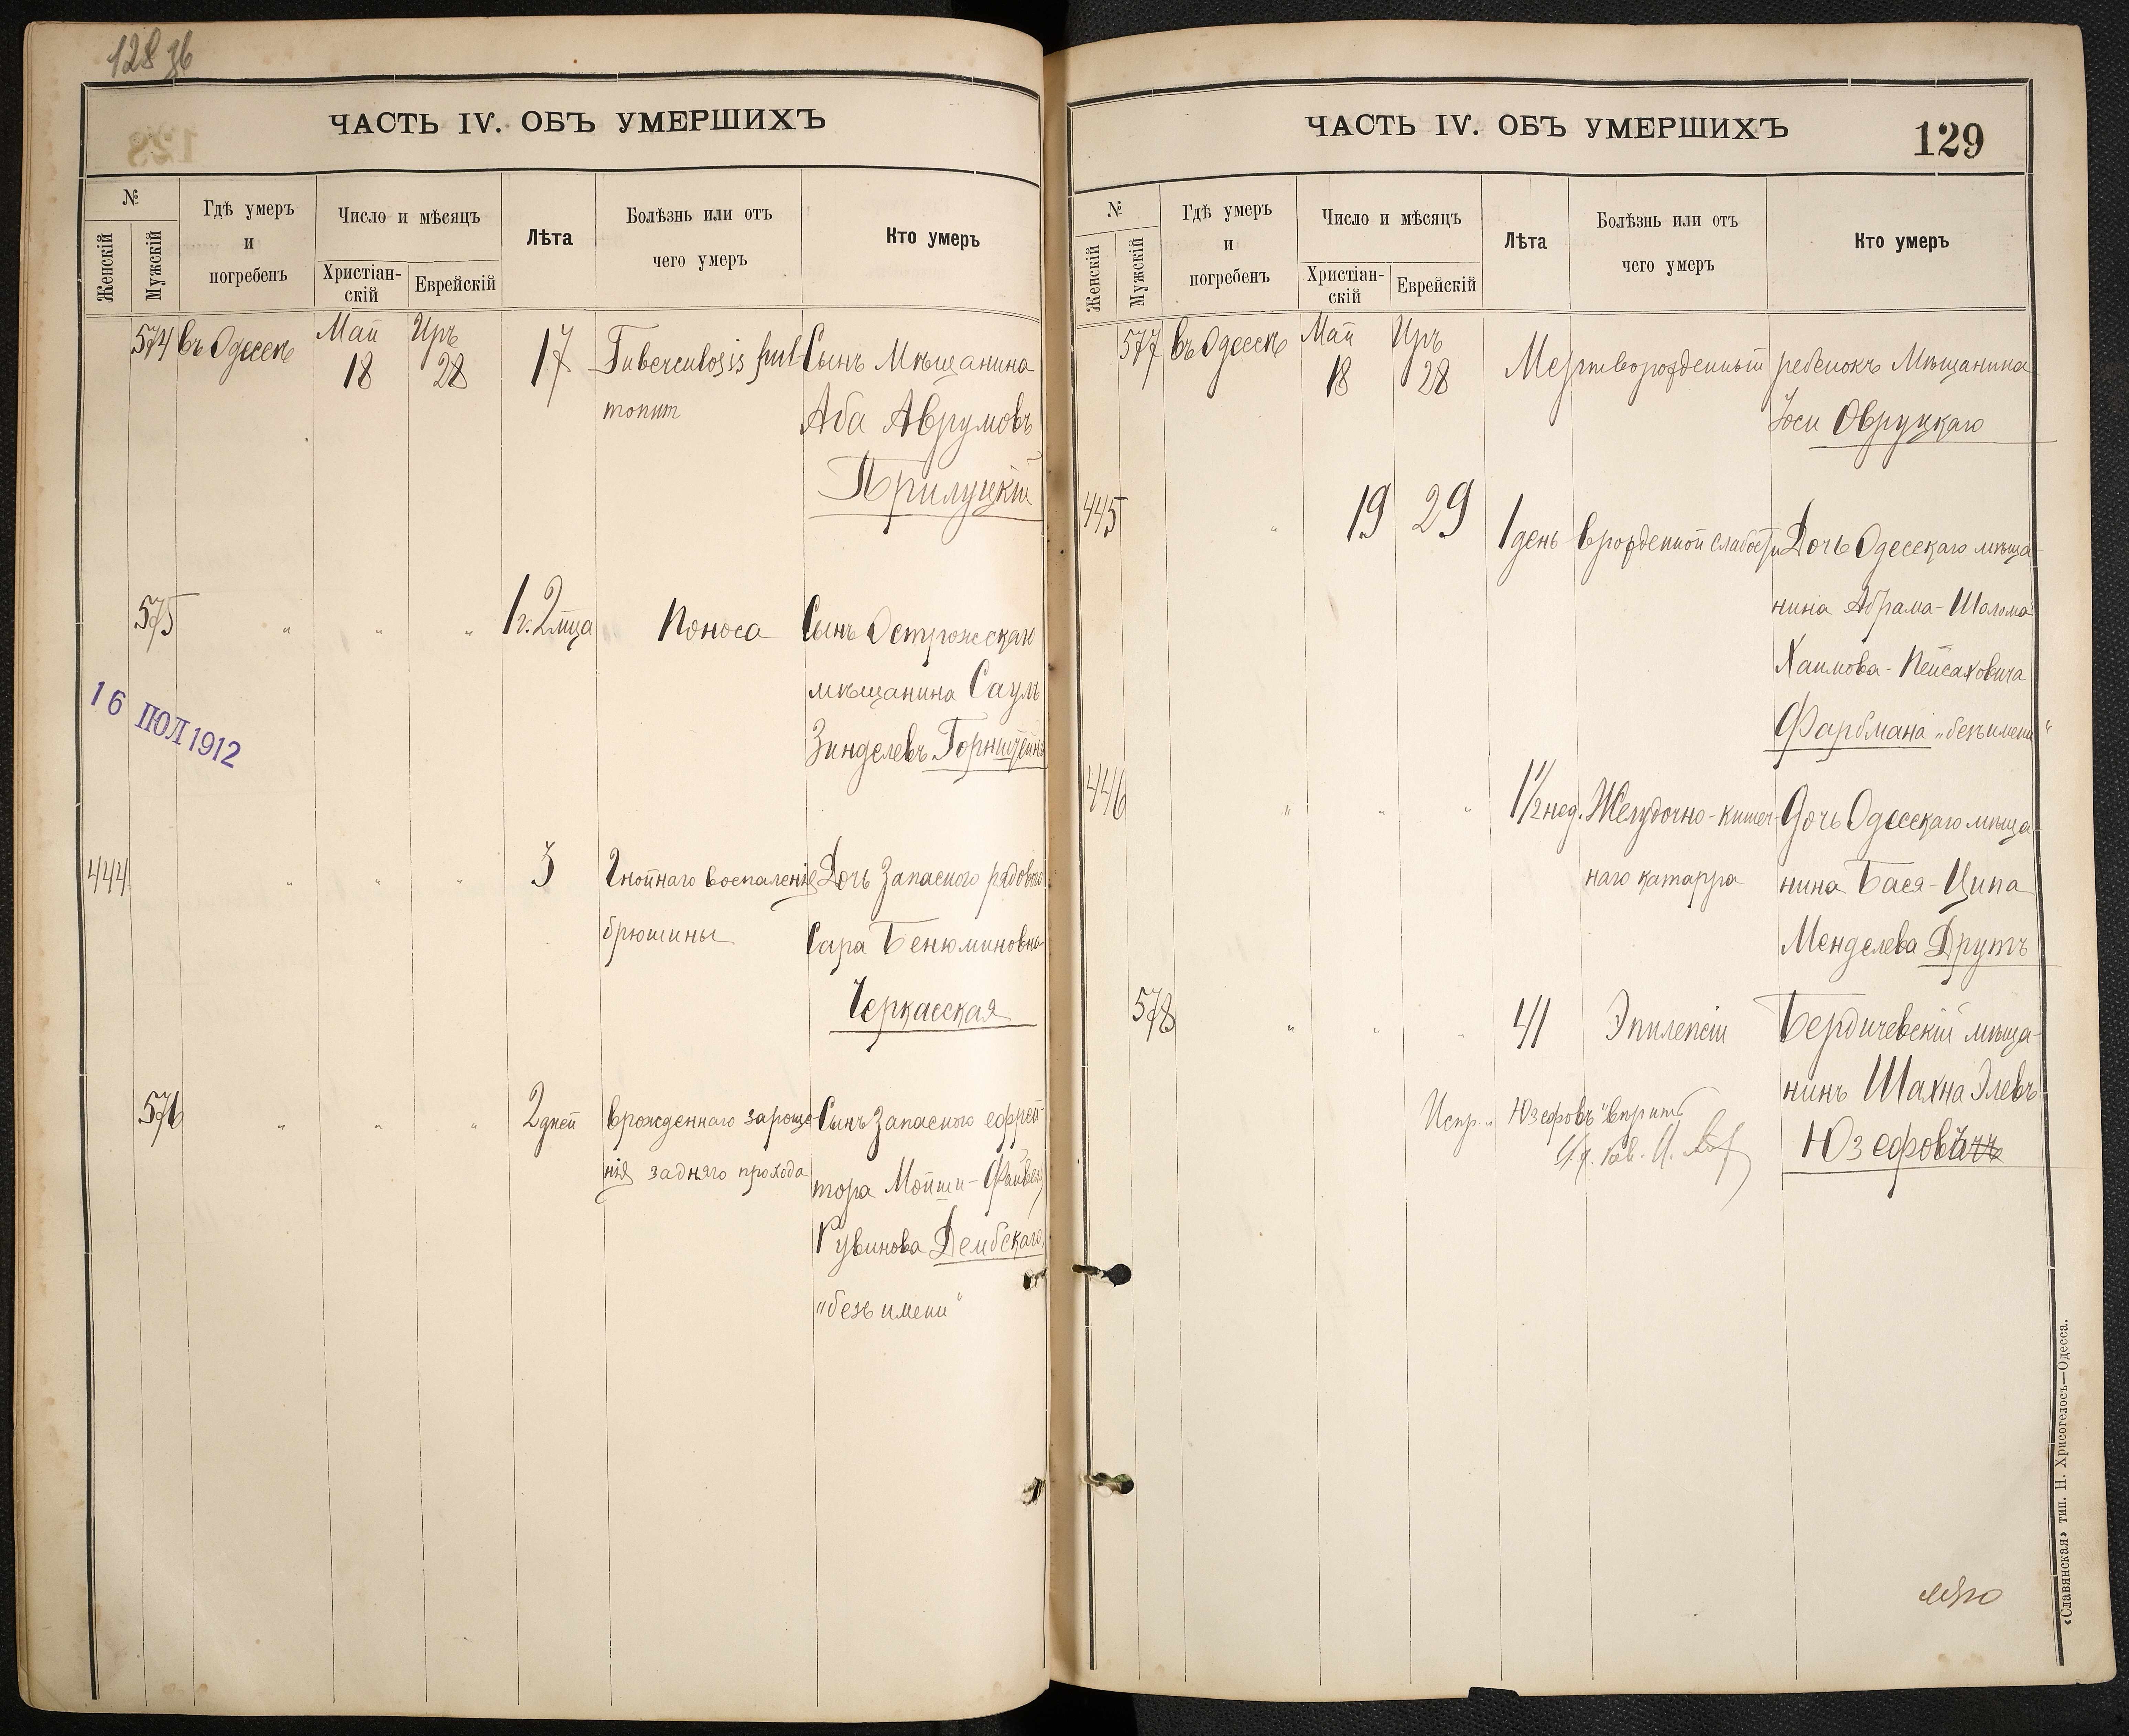 128 зб
ЧАСТЬ IV. ОБЪ УМЕРШИХЪ
№
Женскій
Мужскій
Гдѣ умеръ
и
погребенъ
Число и мѣсяцъ
Христіан-
скій
Еврейскій
Лѣта
Болѣзнь или отъ
чего умеръ
Кто умеръ
574 въ Одессѣ Май 18 Иръ 28 17 Tuberculosis pul- Сынъ Мѣщанина
Аба Аврумовъ
Прилуцкій
575 " " " 1 г. 2 мца Поноса Сынъ Острожскаго
мѣщанина Сауль
Зинделевъ Горнштейнъ
16 ІЮЛ 1912
444 " " " 3 Гнойнаго воспаленія Дочь Запасного рядового
брюшины Сара Бенюминовна
Черкасская
576 " " " 2 дней врожденнаго зароще- Сынъ Запасного ефрей-
нія задняго прохода тора Мойши-Файвеля
Рувинова Дембскаго
"безъ имени"
ЧАСТЬ IV. ОБЪ УМЕРШИХЪ
129
№
Женскій
Мужскій
Гдѣ умеръ
и
погребенъ
Число и мѣсяцъ
Христіан-
скій
Еврейскій
Лѣта
Болѣзнь или отъ
чего умеръ
Кто умеръ
577 въ Одессѣ Май 18 Иръ 28 Мертворожденный ребенокъ Мѣщанина
Іоси Овруцкаго
445 " 19 29 1 день врожденной слабости Дочь Одесскаго мѣща-
нина Абрама-Шолома
Хаимова-Пейсаховича
Фарбмана "безъ имени"
446 " " " 1 1/2 нед. Желудочно-кишеч- Дочь Одесскаго мѣща-
наго катарра нина Бася-Ципа
Менделева Друтъ
578 " " " 41 Эпилепсіи Бердичевскій мѣща-
нинъ Шахна Элевъ
Юзефовъ
Испр. "Юзефовъ" вѣрить
«Славянская» тип. Н. Хрисогелосъ—Одесса.